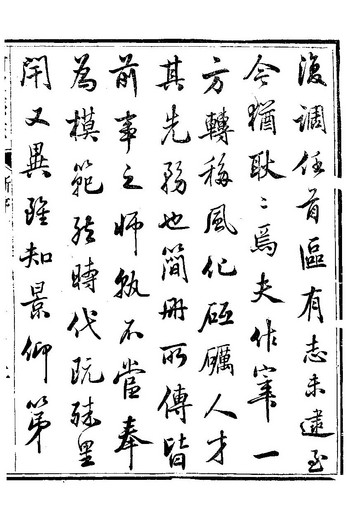 復調任首區有志未逮至
今猶耿〻焉夫作宰一
方轉移風化砥礪人才
其先務也簡冊所傳皆
前事之師孰不當奉
為模範然時代既殊里
閈又異雖知景仰第